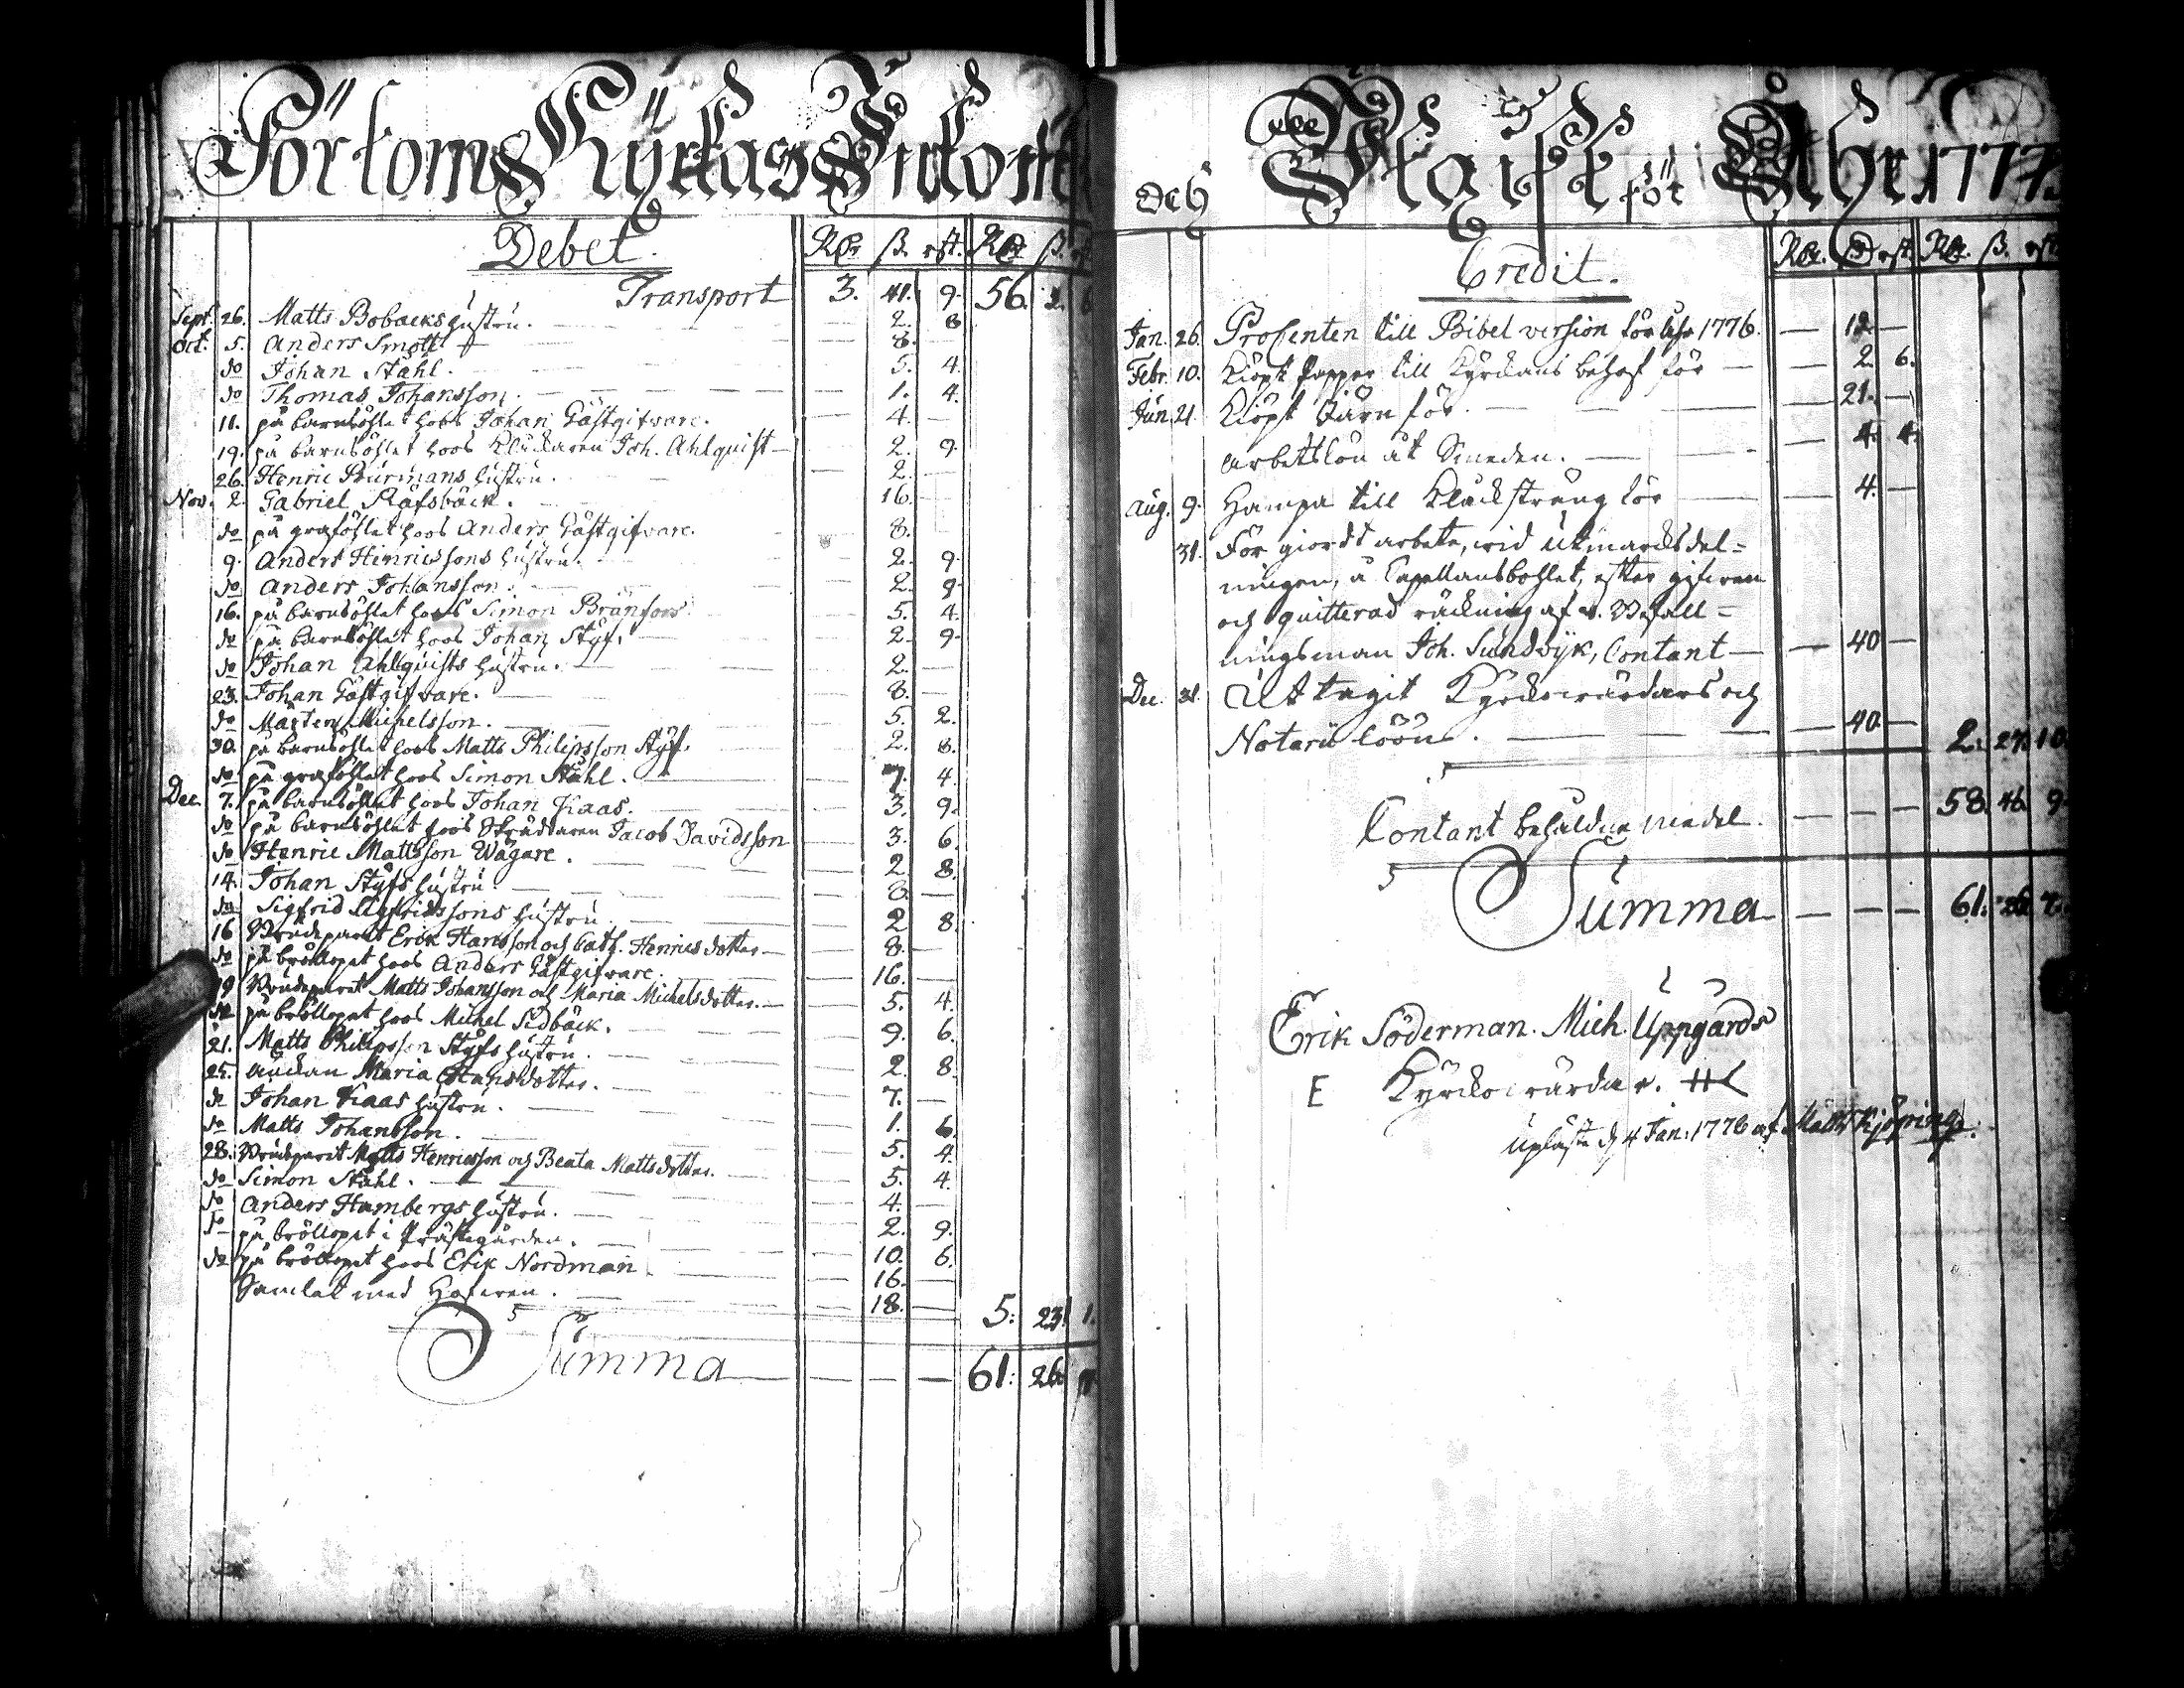 Pörtoms Kyrkas Inkomst
Debet.
Rdr ß. rst. Rdr ß. rst.
Transport 3. 41. 9. 56. 2. 6
Sept. 26. Matts Bobacks hustru. 2. 8
Oct. 5. Anders Smolt 8.
do Johan Ståhl. 5. 4.
do Thomas Johansson. 1. 4.
11. på barnsöhlet hoos Johan Gästgifvare. 4.
19. på barnsöhlet hoos Kluckaren Joh. Ahlquist 2. 9.
26. Henric Burmans hustru. 2.
Nov. 2. Gabriel Räfsbäck. 16.
do på graföhlet hoos Anders Gästgifvare. 8.
9. Anders Hinricssons hustru. 2. 9.
do Anders Johansson. 2. 9.
16. på barnsöhlet hoos Simon Bränfors. 5. 4.
do på barnsöhlet hoos Johan Styf. 2. 9.
do Johan Ahlquists hustru. 2.
23. Johan Gästgifvare. 8.
do Mårten Michelsson. 5. 2.
30. på barnsöhlet hoos Matts Philipsson Styf. 2. 8.
do på graföhlet hoos Simon Ståhl. 7. 4.
Dec. 7. på barnsöhlet hoos Johan Kaas. 3. 9.
do på barnsöhlet hoos Skräddaren Jacob Davidsson 3. 6.
do Henric Mattsson Wågare. 2. 8.
14. Johan Styfs hustru. 8.
do Sigfrid Sigfridssons hustru. 2. 8.
16 Brudeparet Erik Hansson och Cath. Henricsdotter 8.
do på bröllopet hoos Anders Gästgifvare. 16.
19 Brudeparet Matts Johansson och Maria Michelsdotter. 5. 4.
do på bröllopet hoos Michel Sidbäck. 9. 6.
21. Matts Philipsson Styfs hustru. 2. 8.
25. änckan Maria Hansdotter. 7.
do Johan Kaas hustru. 1. 6.
do Matts Johansson. 5. 4.
28. Brudparet Matts Henricsson och Beata Mattsdotter. 5. 4.
do Simon Ståhl. 4.
do Anders Hambergs hustru. 2. 9.
do på bröllopet i Prästegården. 10. 6.
do på bröllopet hoos Erik Nordman 16.
Samlat med Hofven. 18. 5. 23. 1.
Summa 61. 26.
och för Åhr 1777.
Credit.
Rdr. ß rst. Rdr. ß. rst.
Jan. 26. Procenten till Bibel version för Åhr 1776. 12
Febr. 10. Köpt Papper till Kyrckans behof för 2. 6.
Jun. 21. Köpt Järn för. 21.
arbetslön åt Smeden. 4. 4.
Aug. 9. Hampa till Klåcksträng för 4.
31. För giordt arbete, wid utmarcksdel=
ningen, å Capellansbohlet, efter gifven
och quitterad räckning af v. Befall=
ningsman Joh. Sundvyk, Contant 40
Dec. 31. Uttagit Kyrckowärdars och
Notarii löön. 40 2. 27. 10.
Contant behåldne medel. 58. 46. 9.
Summa 61. 26. 7.
Erik Söderman. Mich. Uppgårds
E Kyrckowärdar.
upläste d 4 Jan: 1776 af